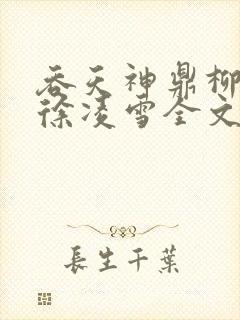 吞天神鼎柳
徐凌雪全文
長生千葉